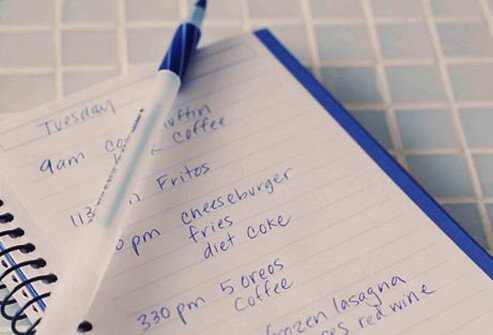 Tuesday
9am
Coffee
Fritos
pm cheeseburger
fries
diet coke
330pm 5 oreos
coffee
lasagna
red wine